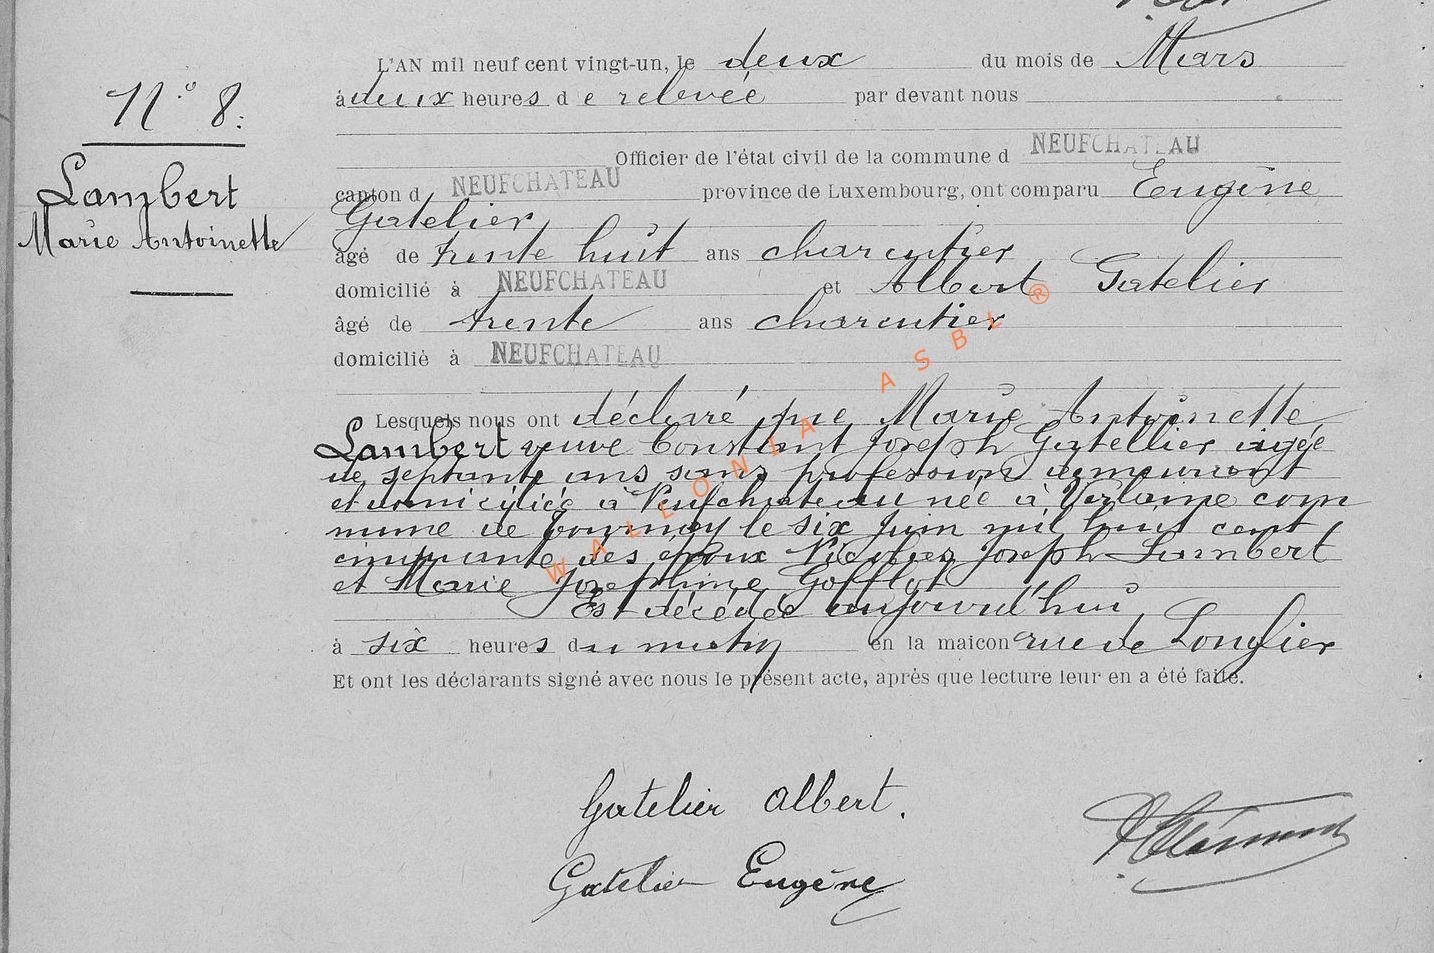 N° 8.
Lambert
Marie Antoinette
L'AN mil neuf cent vingt-un, le deux du mois de Mars
à deux heures de relevée par devant nous
Officier de l'état civil de la commune d NEUFCHATEAU
canton d NEUFCHATEAU province de Luxembourg, ont comparu Eugène
Gatelier
âgé de trente huit ans charcutier
domicilié à NEUFCHATEAU et Albert Gatelier
âgé de trente ans charcutier
domicilié à NEUFCHATEAU
Lesquels nous ont déclaré que Marie Antoinette
Lambert veuve Constant Joseph Gatellier âgée
de septante ans sans profession demeurant
et domiciliée à Neufchateau née à Verlaine com
mune de Tournay le six Juin mil huit cent
cinquante des époux Nicolas Joseph Lambert
et Marie Josephine Gofflot
Est décédée aujourd'hui
à six heures du matin en la maison rue de Longlier
Et ont les déclarants signé avec nous le présent acte, après que lecture leur en a été faite.
Gatelier Albert.
Gatelier Eugène
WALLONIA ASBL ®